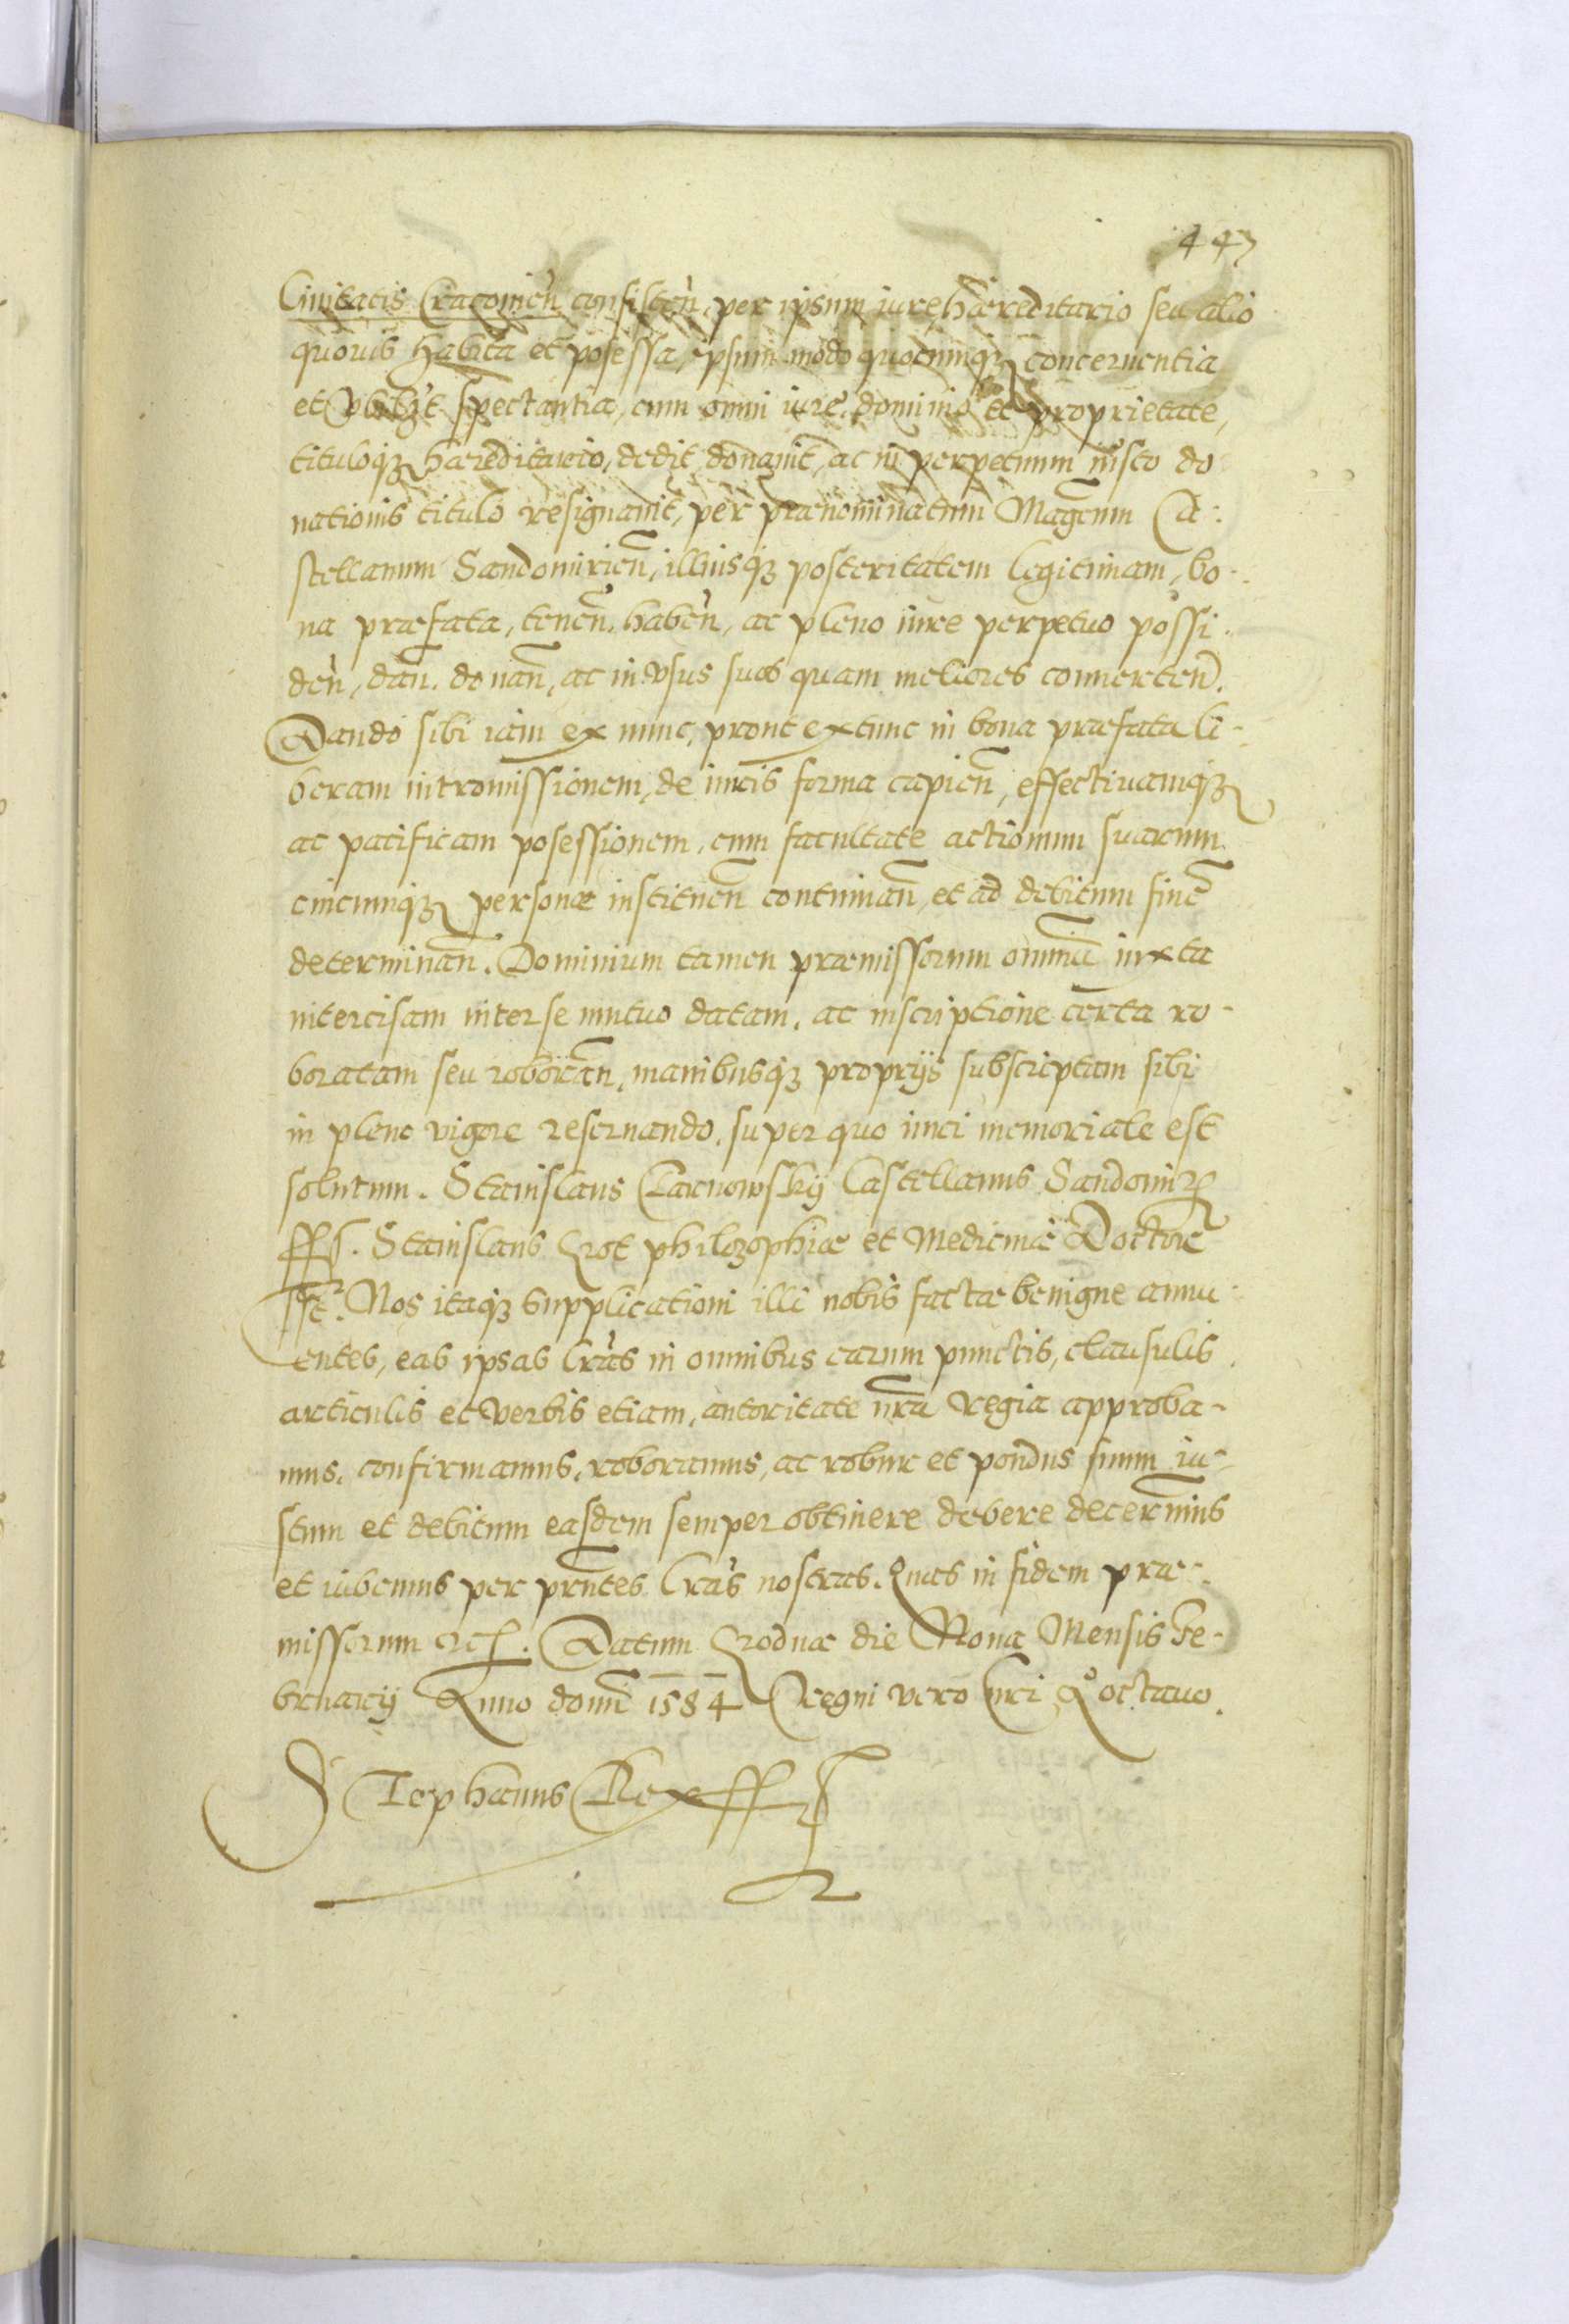 447
Civitatis Cracovien̄ consisten̄, per ipsum iure hæreditario seu alio
quovis habita et posessa, ipsum modo quocunqꝫ concernentia
et spectantia, cum omni iure dominio et proprietate,
tituloqꝫ hæreditario, dedit donavit, ac in perpetuum iusto do
nationis titulo resignavit, per prænominatum Mag̅cum Ca:
stellanum Sandomirien̄, illiusqꝫ posteritatem legitimam, bo-
na præfata, tenen̄, haben̄, ac pleno iure perpetuo possi-
den̄, dan̄. donan̄, ac in vsus suos quam meliores conuerten̄.
Dando sibi iam ex nunc, prout extunc in bona præfata li-
beram intromissionem, de iuris forma capien̄, effectiuamqꝫ
ac pacificam posessionem, cum facultate actionum suarum
cuicunqꝫ personæ instituen̄ continuan̄, et ad debitum finē
determinan̄. Dominium tamen præmissorum omniū iuxta
intercisam inter se mutuo datam, ac inscriptione certa ro-
boratam seu roboran̄, manibusqꝫ proprijs subscriptam sibi
in pleno vigore reseruando, super quo iuri memoriale est
solutum. Stanislaus Tarnowskij Castellanus Sandomir̄
ssſ. Stanislaus Zrot philozophiæ et Medicinæ Doctor
sſt. Nos itaqꝫ supplicationi illi nobis factæ benigne annu-
entes, eas ipsas lr̄as in omnibus earum punctis, clausulis
articulis et verbis etiam, autoritate nr̄a regia approba-
mus, confirmamus, roboramus, ac robur et pondus suum iu-
stum et debitum easdem semper obtinere debere decernim̄us
et iubemus per prn̄tes lr̄as nostras. Quas in fidem præ-
missorum etc. Datum Grodnæ die Nona Mensis Fe-
bruarij Anno domī 1584 Regni vero nr̄i Aº octauo.
Stephanus Rex ssſt